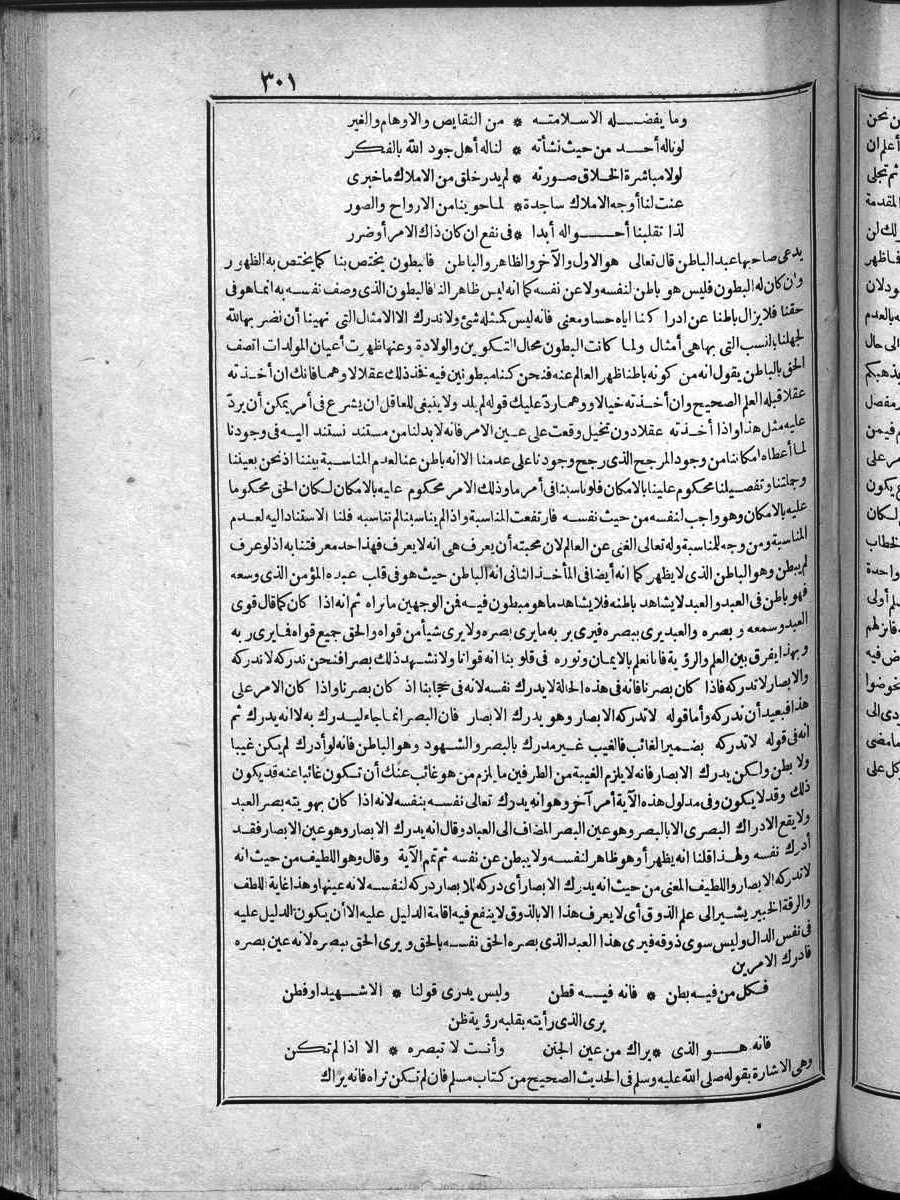 ٣٠١
وما يفضله الاسلامته * من النقايص والاوهام والغير
لوناله أحد من حيث نشأته * لناله أهل جود الله بالفكر
لولا مباشرة الخلاق صورته * لم يدر خلق من الاملاك ما خبرى
عنت لنا أوجه الاملاك ساجدة * لما حوينا من الارواح والصور
لذا تقلبنا أحواله أبدا * فى نفع ان كان ذاك الامر أو ضرر
يدعى صاحبها عبد الباطن قال تعالى هو الاول والآخر والظاهر والباطن فالبطون يختص بنا كما يختص به الظهور
وان كان له البطون فليس هو باطن لنفسه ولا عن نفسه كما انه ليس ظاهر النا فالبطون الذى وصف نفسه به انما هو فى
حقنا فلا يزال باطنا عن ادراكنا اياه حسا ومعنى فانه ليس كمثله شئ ولا ندرك الا الامثال التى نهينا أن نضر بها لله
لجهلنا بالنسب التى بها هى أمثال ولما كانت البطون محال التكوين والولادة وعنها ظهرت أعيان المولدات اتصف
الحق بالباطن يقول انه من كونه باطنا ظهر العالم عنه فنحن كنا مبطونين فيه نفذ ذلك عقلا لا وهما فانك ان أخذته
عقلا قبله العلم الصحيح وان أخذته خيالا ووهما رد عليك قوله لم يلد ولا ينبغى للعاقل ان يشرع فى أمر يمكن أن يرد
عليه مثل هذا واذا أخذته عقلا دون تخيل وقعت على عين الامر فانه لا بد لنا من مستند نستند اليه فى وجودنا
لما أعطاه امكاننا من وجود المرجح الذى رجح وجودنا على عدمنا الا انه باطن عنا لعدم المناسبة بيننا اذ نحن بعيننا
وجملتنا وتفصيلنا محكوم علينا بالامكان فلو ناسبنا فى أمر ما وذلك الامر محكوم عليه بالامكان لكان الحق محكوما
عليه بالامكان وهو واجب لنفسه من حيث نفسه فارتفعت المناسبة واذا لم يناسبنا لم نناسبه فلنا الاستناد اليه لعدم
المناسبة ومن وجه للمناسبة وله تعالى الغنى عن العالم لان محبته أن يعرف هى انه لا يعرف فهذا حد معرفتنا به اذ لو عرف
لم يبطن وهو الباطن الذى لا يظهر كما انه أيضا فى المأخذ الثانى انه الباطن حيث هو فى قلب عبده المؤمن الذى وسعه
فهو باطن فى العبد والعبد لا يشاهد باطنه فلا يشاهد ما هو مبطون فيه فمن الوجهين ما نراه ثم انه اذا كان كما قال قوى
العبد وسمعه وبصره والعبد يرى ببصره فيرى بر به ما يرى بصره ولا يرى شيأ من قواه والحق جميع قواه فما يرى ربه
وبهذا يفرق بين العلم والرؤية فانا نعلم بالايمان ونوره فى قلوبنا انه قوانا ولا نشهد ذلك بصرا فنحن ندركه لا ندركه
والابصار لا تدركه فاذا كان بصرنا فانه فى هذه الحالة لا يدرك نفسه لانه فى حجابنا اذ كان بصرنا واذا كان الامر على
هذا فبعيد أن ندركه وأما قوله لا تدركه الابصار وهو يدرك الابصار فان البصر انما جاء ليدرك به لا انه يدرك ثم
انه فى قوله لا تدركه بضمير الغائب فالغيب غير مدرك بالبصر والشهود وهو الباطن فانه لو أدرك لم يكن غيبا
ولا بطن ولكن يدرك الابصار فانه لا يلزم الغيبة من الطرفين ما يلزم من هو غائب عنك أن تكون غائبا عنه قد يكون
ذلك وقد لا يكون وفى مدلول هذه الآية أمر آخر وهو انه يدرك تعالى نفسه بنفسه لانه اذا كان بهويته بصر العبد
ولا يقع الادراك البصرى الا بالبصر وهو عين البصر المضاف الى العباد وقال انه يدرك الابصار وهو عين الابصار فقد
أدرك نفسه ولهذا قلنا انه يظهر أو هو ظاهر لنفسه ولا يبطن عن نفسه ثم تمم الآية وقال وهو اللطيف من حيث انه
لا تدركه الابصار واللطيف المعنى من حيث انه يدرك الابصار أى دركه للابصار دركه لنفسه لانه عينها وهذا غاية اللطف
والرقة الخبير يشير الى علم الذوق أى لا يعرف هذا الا بالذوق لا ينفع فيه اقامة الدليل عليه الا أن يكون الدليل عليه
فى نفس الدال وليس سوى ذوقه فيرى هذا العبد الذى بصره الحق نفسه بالحق ويرى الحق ببصره لانه عين بصره
فأدرك الامرين
فكل من فيه بطن * فانه فيه قطن وليس يدرى قولنا * الا شهيد او فطن
يرى الذى رأيته بقلبه رؤية ظن
فانه هو الذى * يراك من عين الجنن وأنت لا تبصره * الا اذا لم تكن
وهى الاشارة بقوله صلى الله عليه وسلم فى الحديث الصحيح من كتاب مسلم فان لم تكن تراه فانه يراك